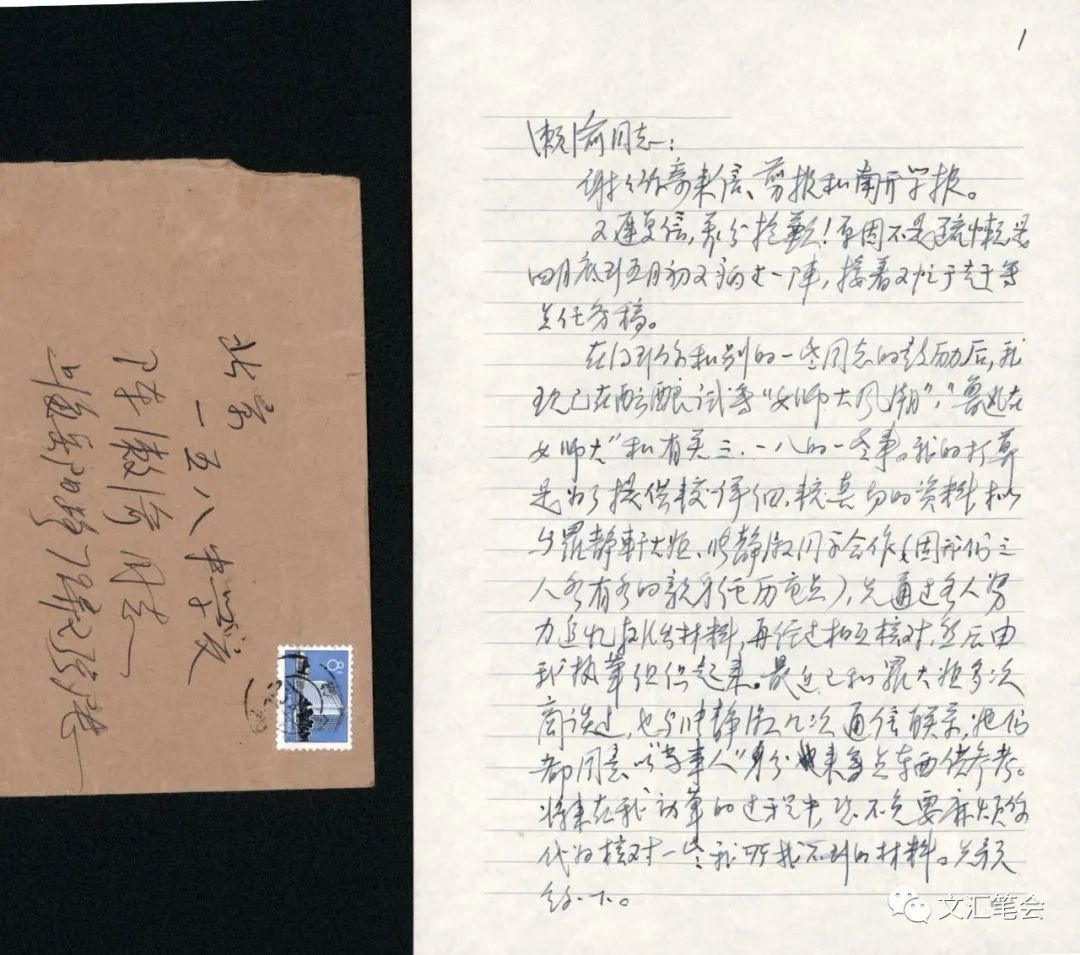 北京
一五八中学
陈漱渝同志
上海
1
漱渝同志：
谢谢你寄来信、剪报和南开学报。
又迟复信，万分抱歉！原因不是疏懒，是
四月底到五月初又病了一阵，接着又忙于赶写
点任务稿。
在得到你和别的一些同志的鼓励后，我
现已在酝酿试写“女师大风潮”，“鲁迅在
女师大”和有关三.一八的一些事。我的打算
是为了提供较详细、较真切的资料拟
与罗静轩大姐、陆静淑同志合作（因我们三
人各有各的亲身经历重点），先通过各人努
力追忆，写出材料，再经过相互核对，然后由
我执笔组织起来。最近已和罗大姐多次
商谈过，也与陆静淑几次通信联系，她们
都同意以“当事人”身份来写点东西供参考。
将来在我动笔的过程中，恐不免要麻烦你
代为核对一些我所找不到的材料。先预
约一下。
8分
文汇笔会